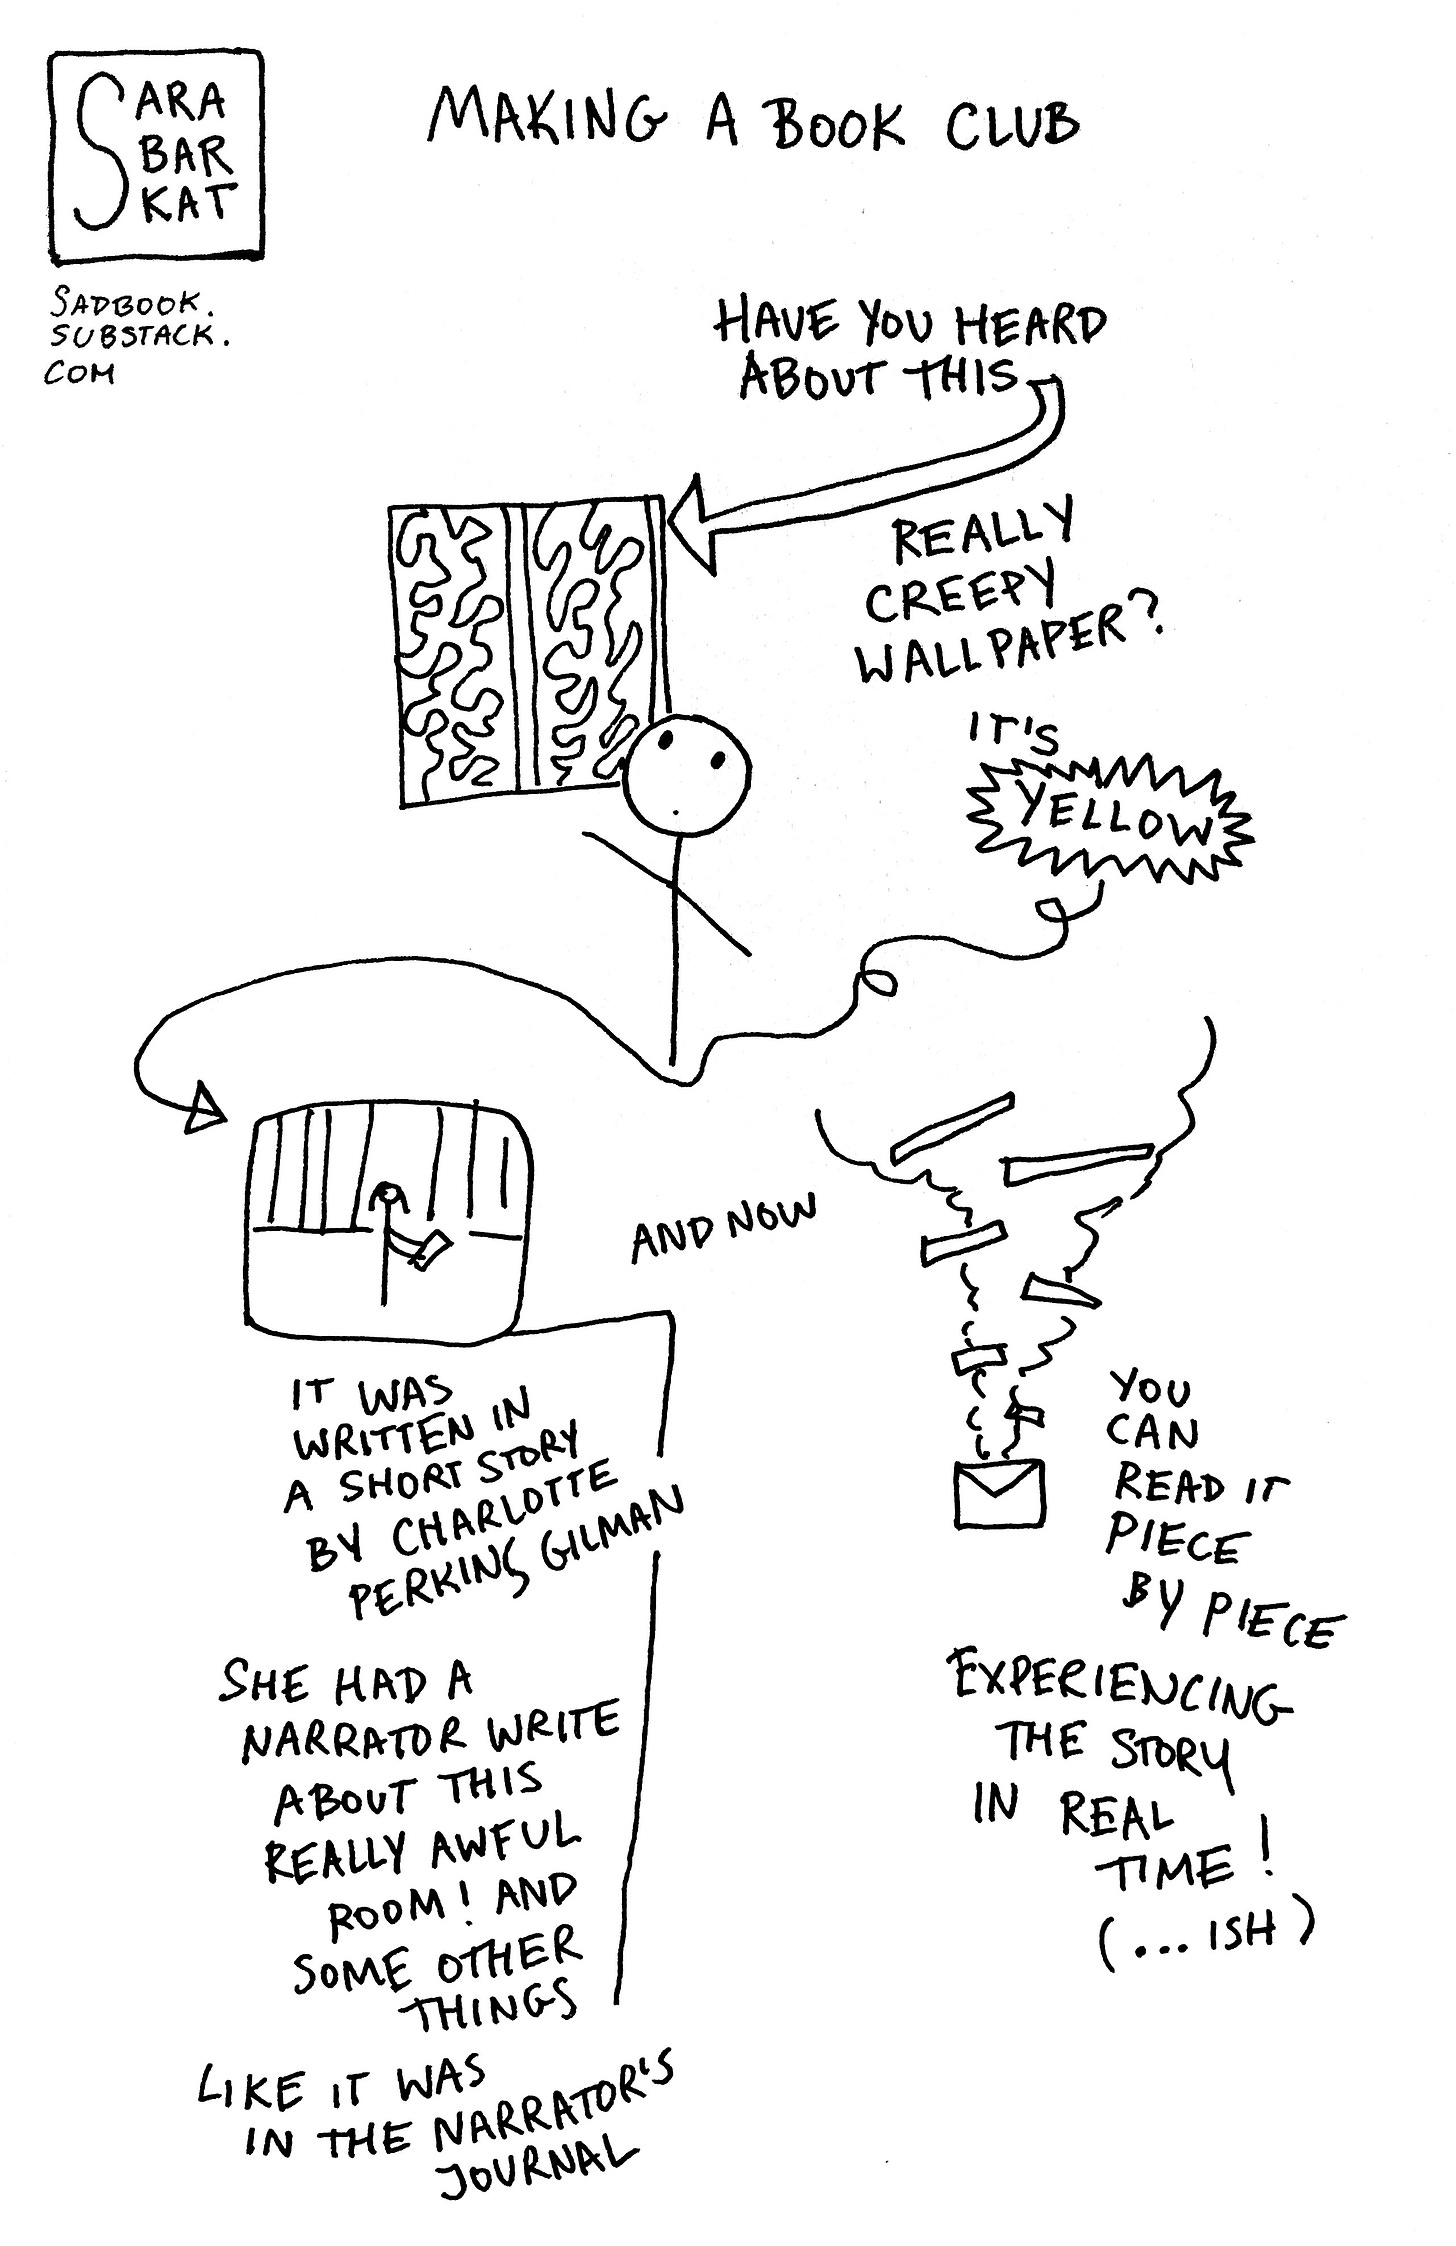 SARA
BAR
KAT
SADBOOK.
SUBSTACK.
COM
MAKING A BOOK CLUB
HAVE YOU HEARD
ABOUT THIS
REALLY
CREEPY
WALLPAPER?
IT'S
YELLOW
IT WAS
WRITTEN IN
A SHORT STORY
BY CHARLOTTE
PERKINS GILMAN
SHE HAD A
NARRATOR WRITE
ABOUT THIS
REALLY AWFUL
ROOM! AND
SOME OTHER
THINGS
LIKE IT WAS
IN THE NARRATOR'S
JOURNAL
AND NOW
YOU
CAN
READ IT
PIECE
BY PIECE
EXPERIENCING
THE STORY
IN REAL
TIME!
(...ISH)